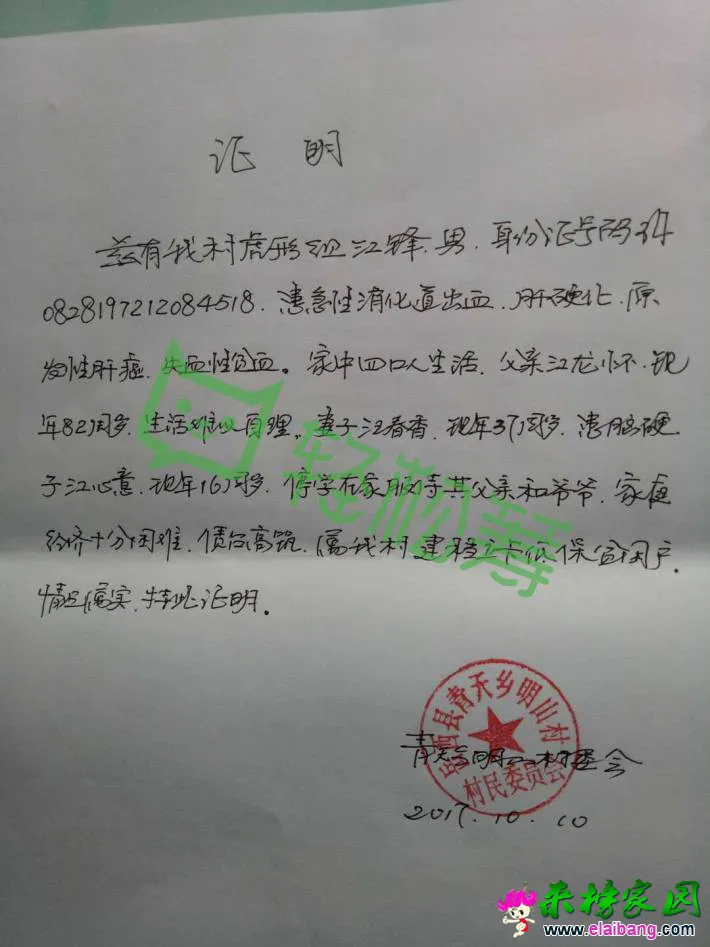 证 明
兹有我村虎形组江锋、男、身份证号码34
0828197212084518、患急性消化道出血、肝硬化、原
发性肝癌、失血性贫血。家中四口人生活、父亲江龙怀、现
年82周岁、生活难以自理。妻子汪春香、现年37周岁、患脑硬、
子江心意、现年16周岁、停学在家服侍其父亲和爷爷、家庭
经济十分困难、债台高筑、属我村建档立卡低保贫困户、
情况属实、特此证明。
岳西县青天乡明山村
村民委员会
青天乡明山村委会
2017.10.10
轻松筹
采榜家园
www.elaibang.com